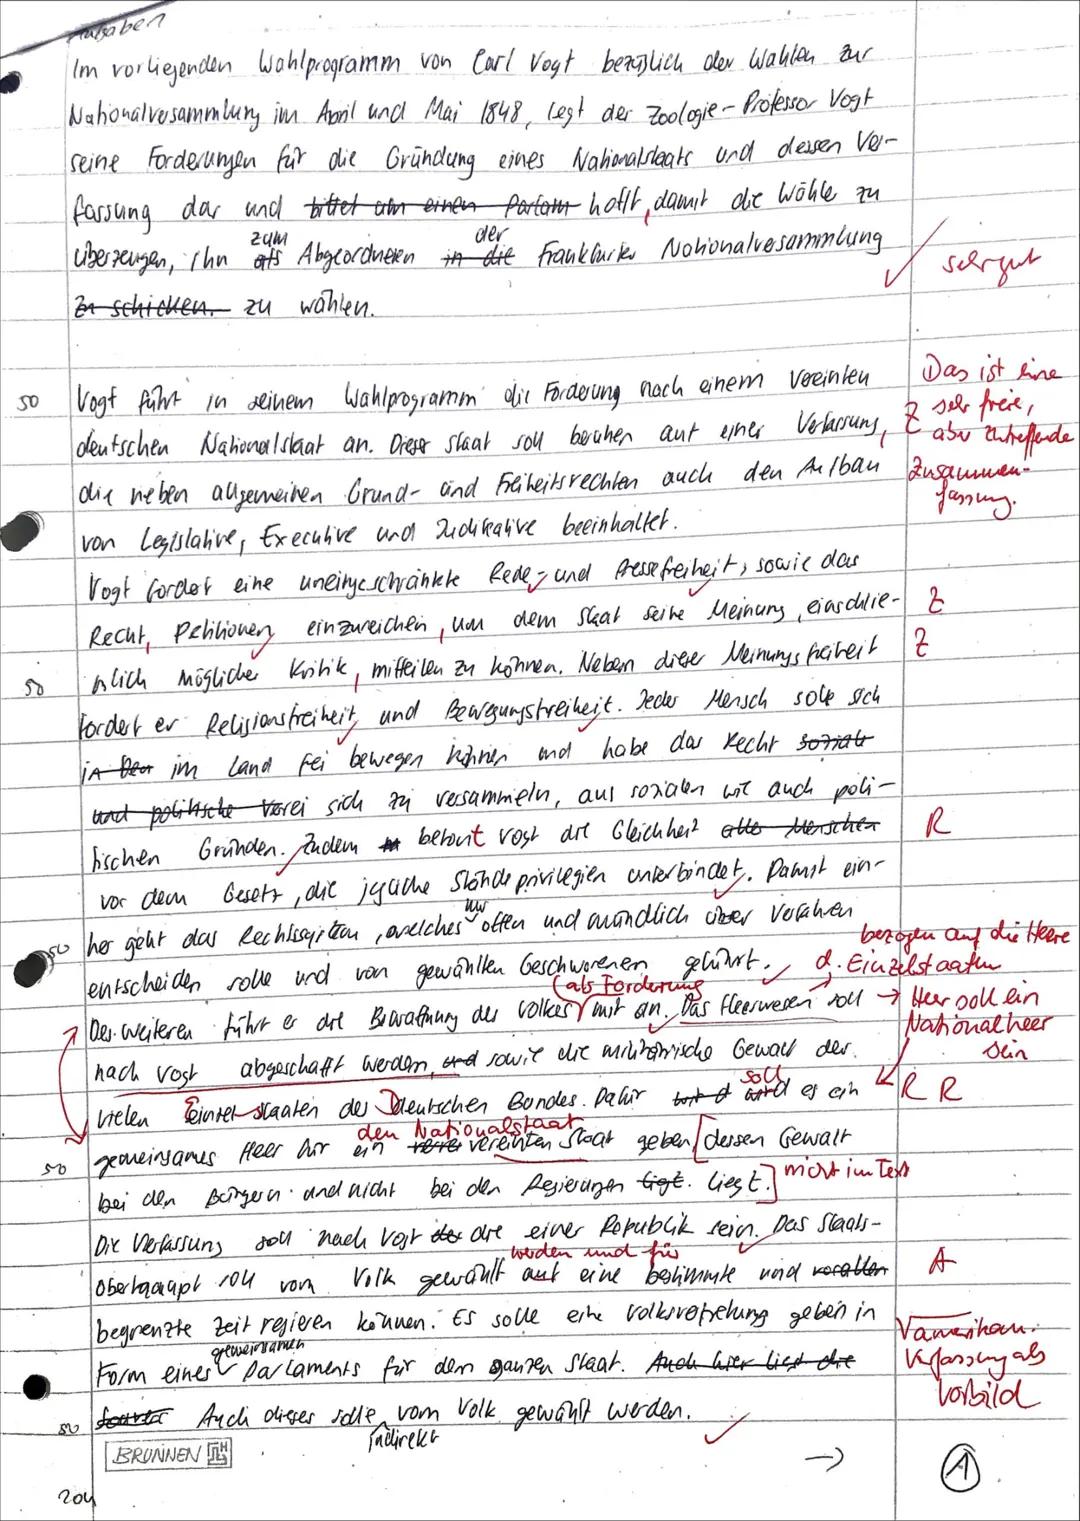 Aufgaben
Im vorliegenden Wahlprogramm von Carl Vogt bezüglich der Wahlen zur
Nationalversammlung im April und Mai 1848, legt der Zoologie-Professor Vogt
seine Forderungen für die Gründung eines Nationalstaats und dessen Ver-
fassung dar und bittet um einen hofft, damit die Wähler zu
überzeugen, ihn als zum Abgeordneten in die der Frankfurter Nationalversammlung
zu schicken. zu wählen.
sehr gut
50 Vogt führt in seinem Wahlprogramm die Forderung nach einem vereinten
deutschen Nationalstaat an. Dieser Staat soll beruhen auf einer Verfassung, Z
die neben allgemeinen Grund- und Freiheitsrechten auch den Aufbau
von Legislative, Executive und Judikative beeinhaltet.
Das ist eine
sehr freie,
aber zutreffende
Zusammen-
fassung.
Vogt fordert eine uneingeschränkte Rede- und Pressefreiheit, sowie das
Recht, Petitionen einzureichen, um dem Staat seine Meinung, einschlie- Z
50 ßlich möglicher Kritik, mitteilen zu können. Neben dieser Meinungsfreiheit Z
fordert er Religionsfreiheit und Bewegungsfreiheit. Jeder Mensch solle sich
in im Land frei bewegen können und habe das Recht soziale
und politische Verei sich zu versammeln, aus sozialen wie auch poli-
tischen Gründen. Zudem betont Vogt die Gleichheit aller Menschen R
vor dem Gesetz, die jegliche Ständeprivilegien unterbindet. Damit ein-
50 her geht das Rechtssystem, welches nur offen und mündlich über Verfahren
entscheiden solle und von gewählten Geschworenen geführt.
bezogen auf die Heere
d. Einzelstaaten
Des weiteren führt er die Bewaffnung des Volkes (als Forderung mit an. Das Heerwesen soll
→ Heer soll ein
Nationalheer
sein
nach Vogt abgeschafft werden, und sowie die militärische Gewalt der
vielen Einzelstaaten des Deutschen Bundes. Dafür wird soll es ein R R
50 gemeinsames Heer für ein den Nationalstaat vereinten Staat geben [dessen Gewalt
bei den Bürgern und nicht bei den Regierungen liegt. liegt.] nicht im Text
Die Verfassung soll nach Vogt die einer Republik sein. Das Staats-
oberhaupt soll vom Volk gewählt werden und für auf eine bestimmte und vor allem A
begrenzte Zeit regieren können. Es solle eine Volksvertretung geben in
Form eines gemeinsamen Parlaments für den ganzen Staat. Auch hier liegt die
amerikan.
Verfassung als
Vorbild
50 Auch dieses solle indirekt vom Volk gewählt werden.
BRUNNEN
→
1
204